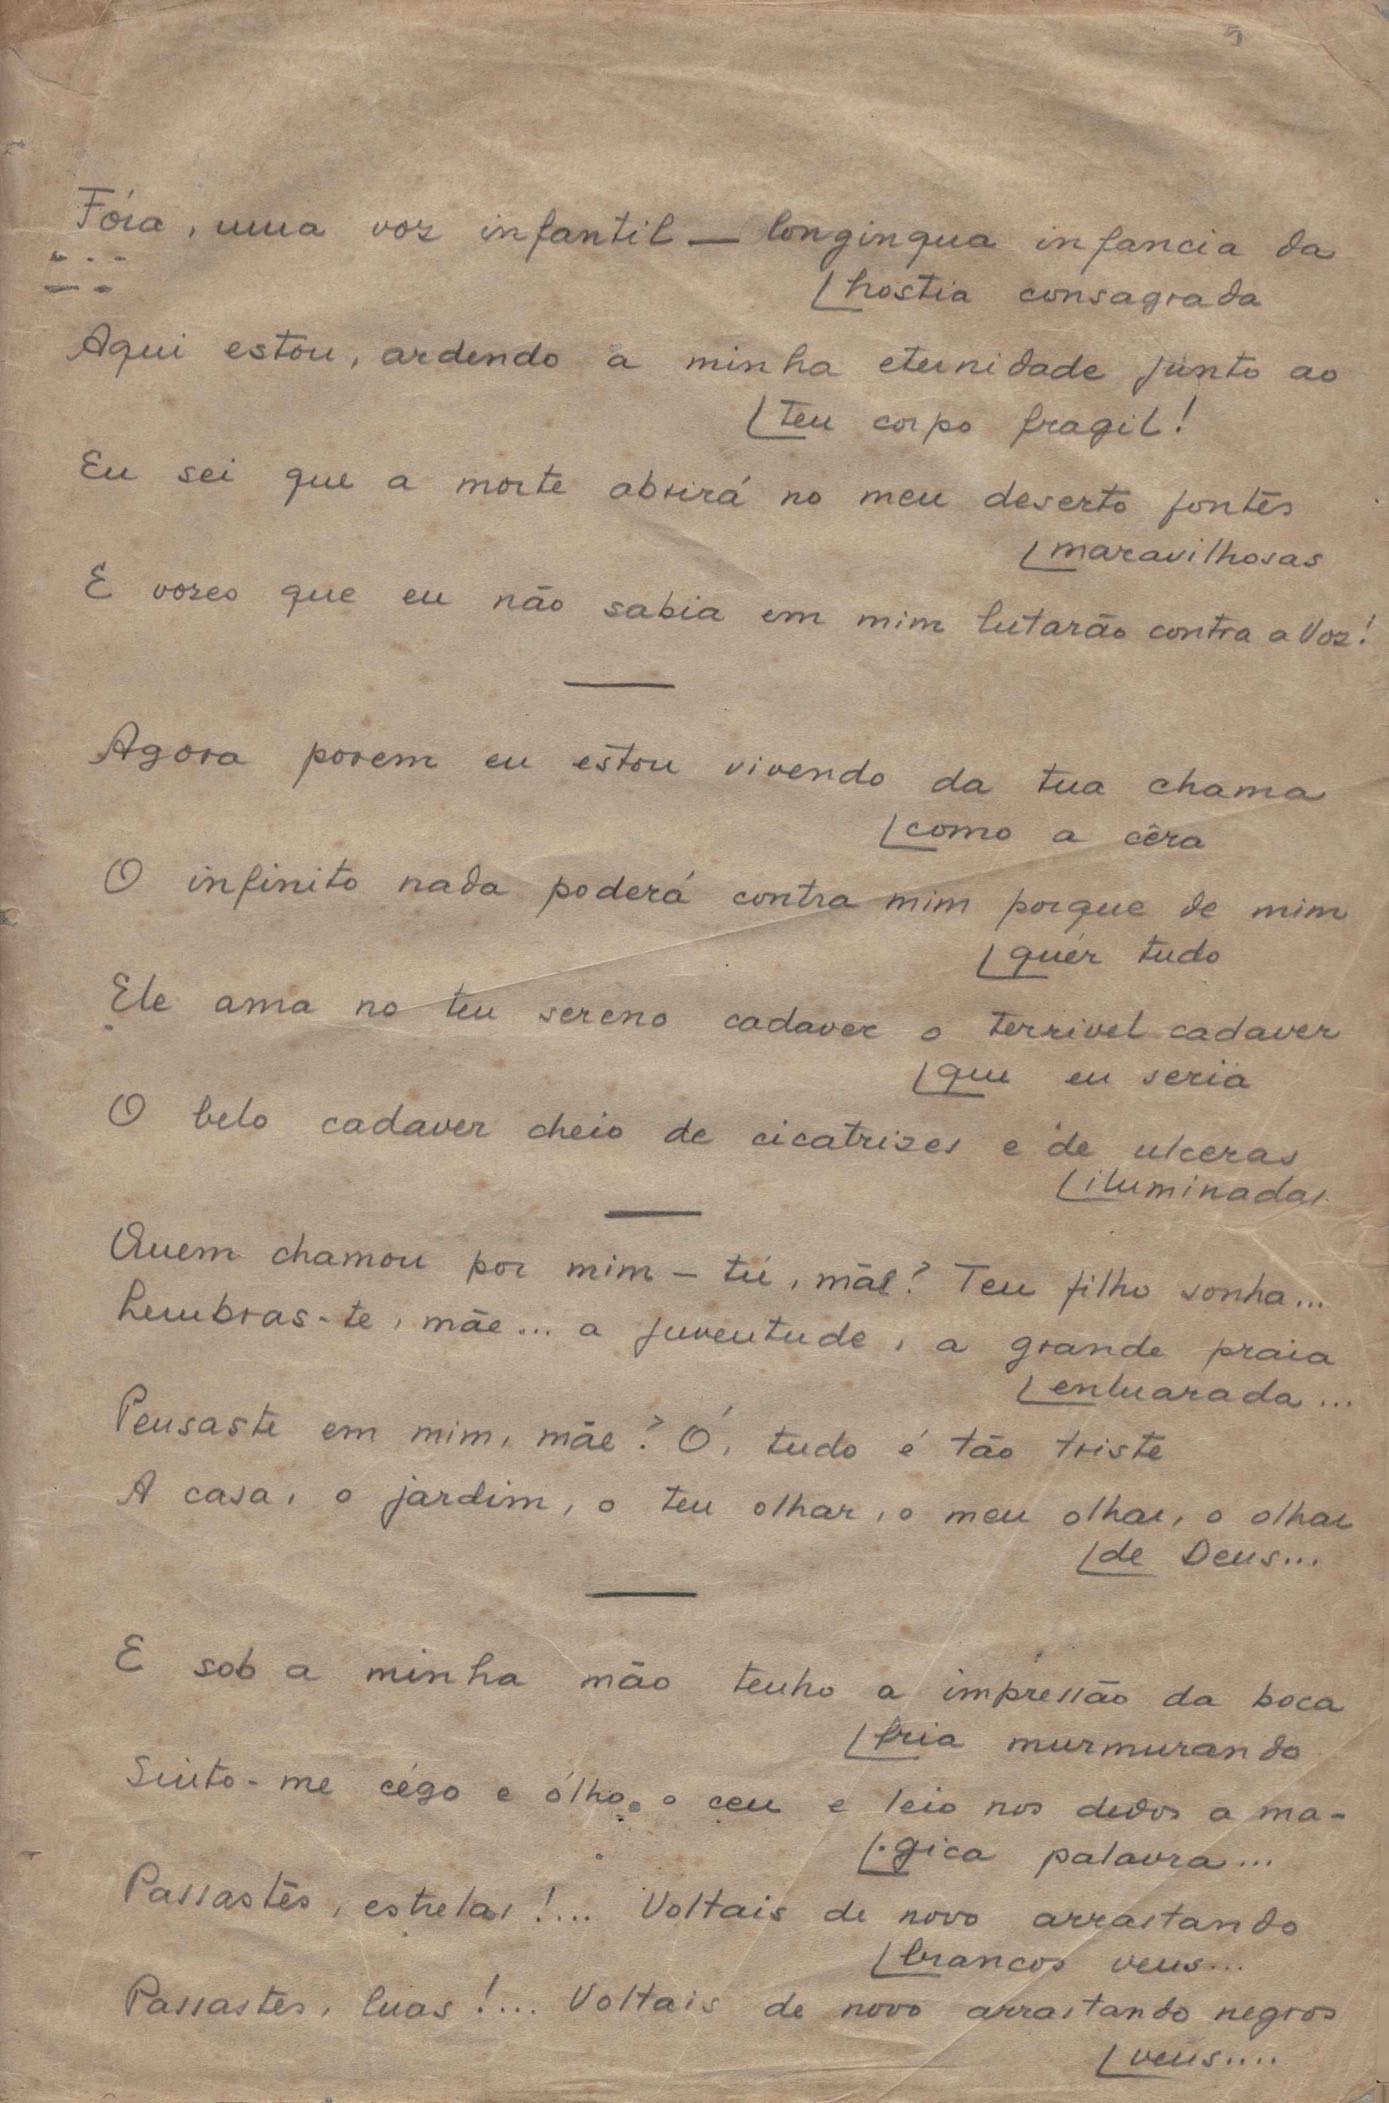 Fóra, uma voz infantil — longinqua infancia da
[hostia consagrada
Aqui estou, ardendo a minha eternidade junto ao
[teu corpo fragil!
Eu sei que a morte abrirá no meu deserto fontes
[maravilhosas
E vozes que eu não sabia em mim lutarão contra a Voz!
Agora porem eu estou vivendo da tua chama
[como a cêra
O infinito nada poderá contra mim porque de mim
[quér tudo
Ele ama no teu sereno cadaver o terrivel cadaver
[que eu seria
O belo cadaver cheio de cicatrizes e de ulceras
[iluminadas.
Quem chamou por mim – tú, mãe? Teu filho sonha...
Lembras-te, mãe... a juventude, a grande praia
[enluarada...
Pensaste em mim, mãe? Ó, tudo é tão triste
A casa, o jardim, o teu olhar, o meu olhar, o olhar
[de Deus...
E sob a minha mão tenho a impressão da boca
[fria murmurando
Sinto-me cégo e ólho o ceu e leio nos dedos a ma-
[gica palavra...
Passastes, estrelas!... Voltais de novo arrastando
[brancos veus...
Passastes, luas!... Voltais de novo arrastando negros
[veus....